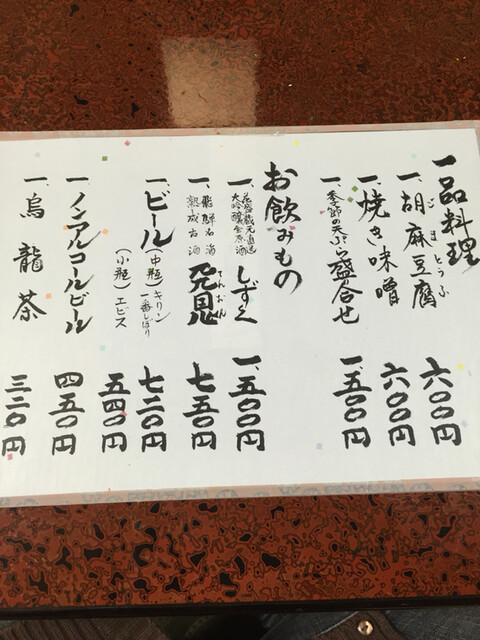 一品料理
一、胡麻豆腐 六〇〇円
ごまとうふ
一、焼き味噌 六〇〇円
一、季節の天ぷら盛合せ 一、五〇〇円
お飲みもの
一、大吟醸 原酒 しずく 一、五〇〇円
一、飛騨 熟成古酒 七五〇円
一、ビール (中瓶) キリン 一番しぼり 七二〇円
(小瓶) エビス 五四〇円
一、ノンアルコールビール 四五〇円
一、烏龍茶 三二〇円